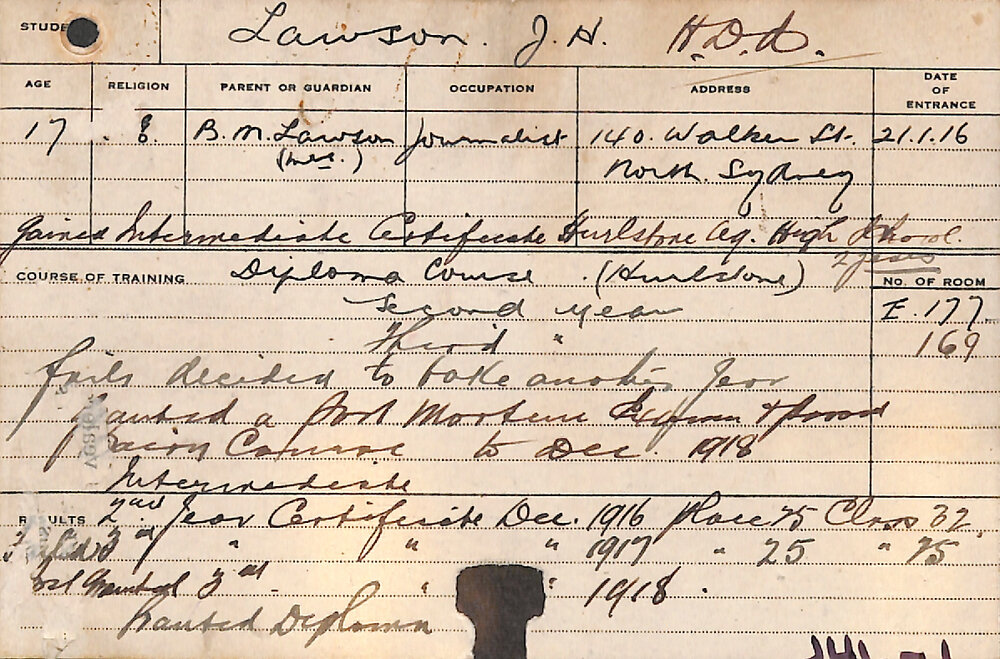 Lawson. J. H. H.D.A.
AGE RELIGION PARENT OR GUARDIAN OCCUPATION ADDRESS DATE OF ENTRANCE
17 B. M. Lawson Journalist 140. Walker St. 21.1.16
(Mrs.) North. Sydney
Gained Intermediate Certificate Hurlstone Ag. High School.
2 years
COURSE OF TRAINING Diploma Course. (Hurlstone) NO. OF ROOM
Second year E. 177
Third " 169
fails decided to take another year
Granted a Post Mortem Exam & passed
Dairy Course to Dec. 1918
Intermediate
RESULTS 2nd Year Certificate Dec. 1916 Place 25 Class 32
Failed 3rd " " " 1917 " 25 " 25
3rd " " 1918.
Granted Diploma